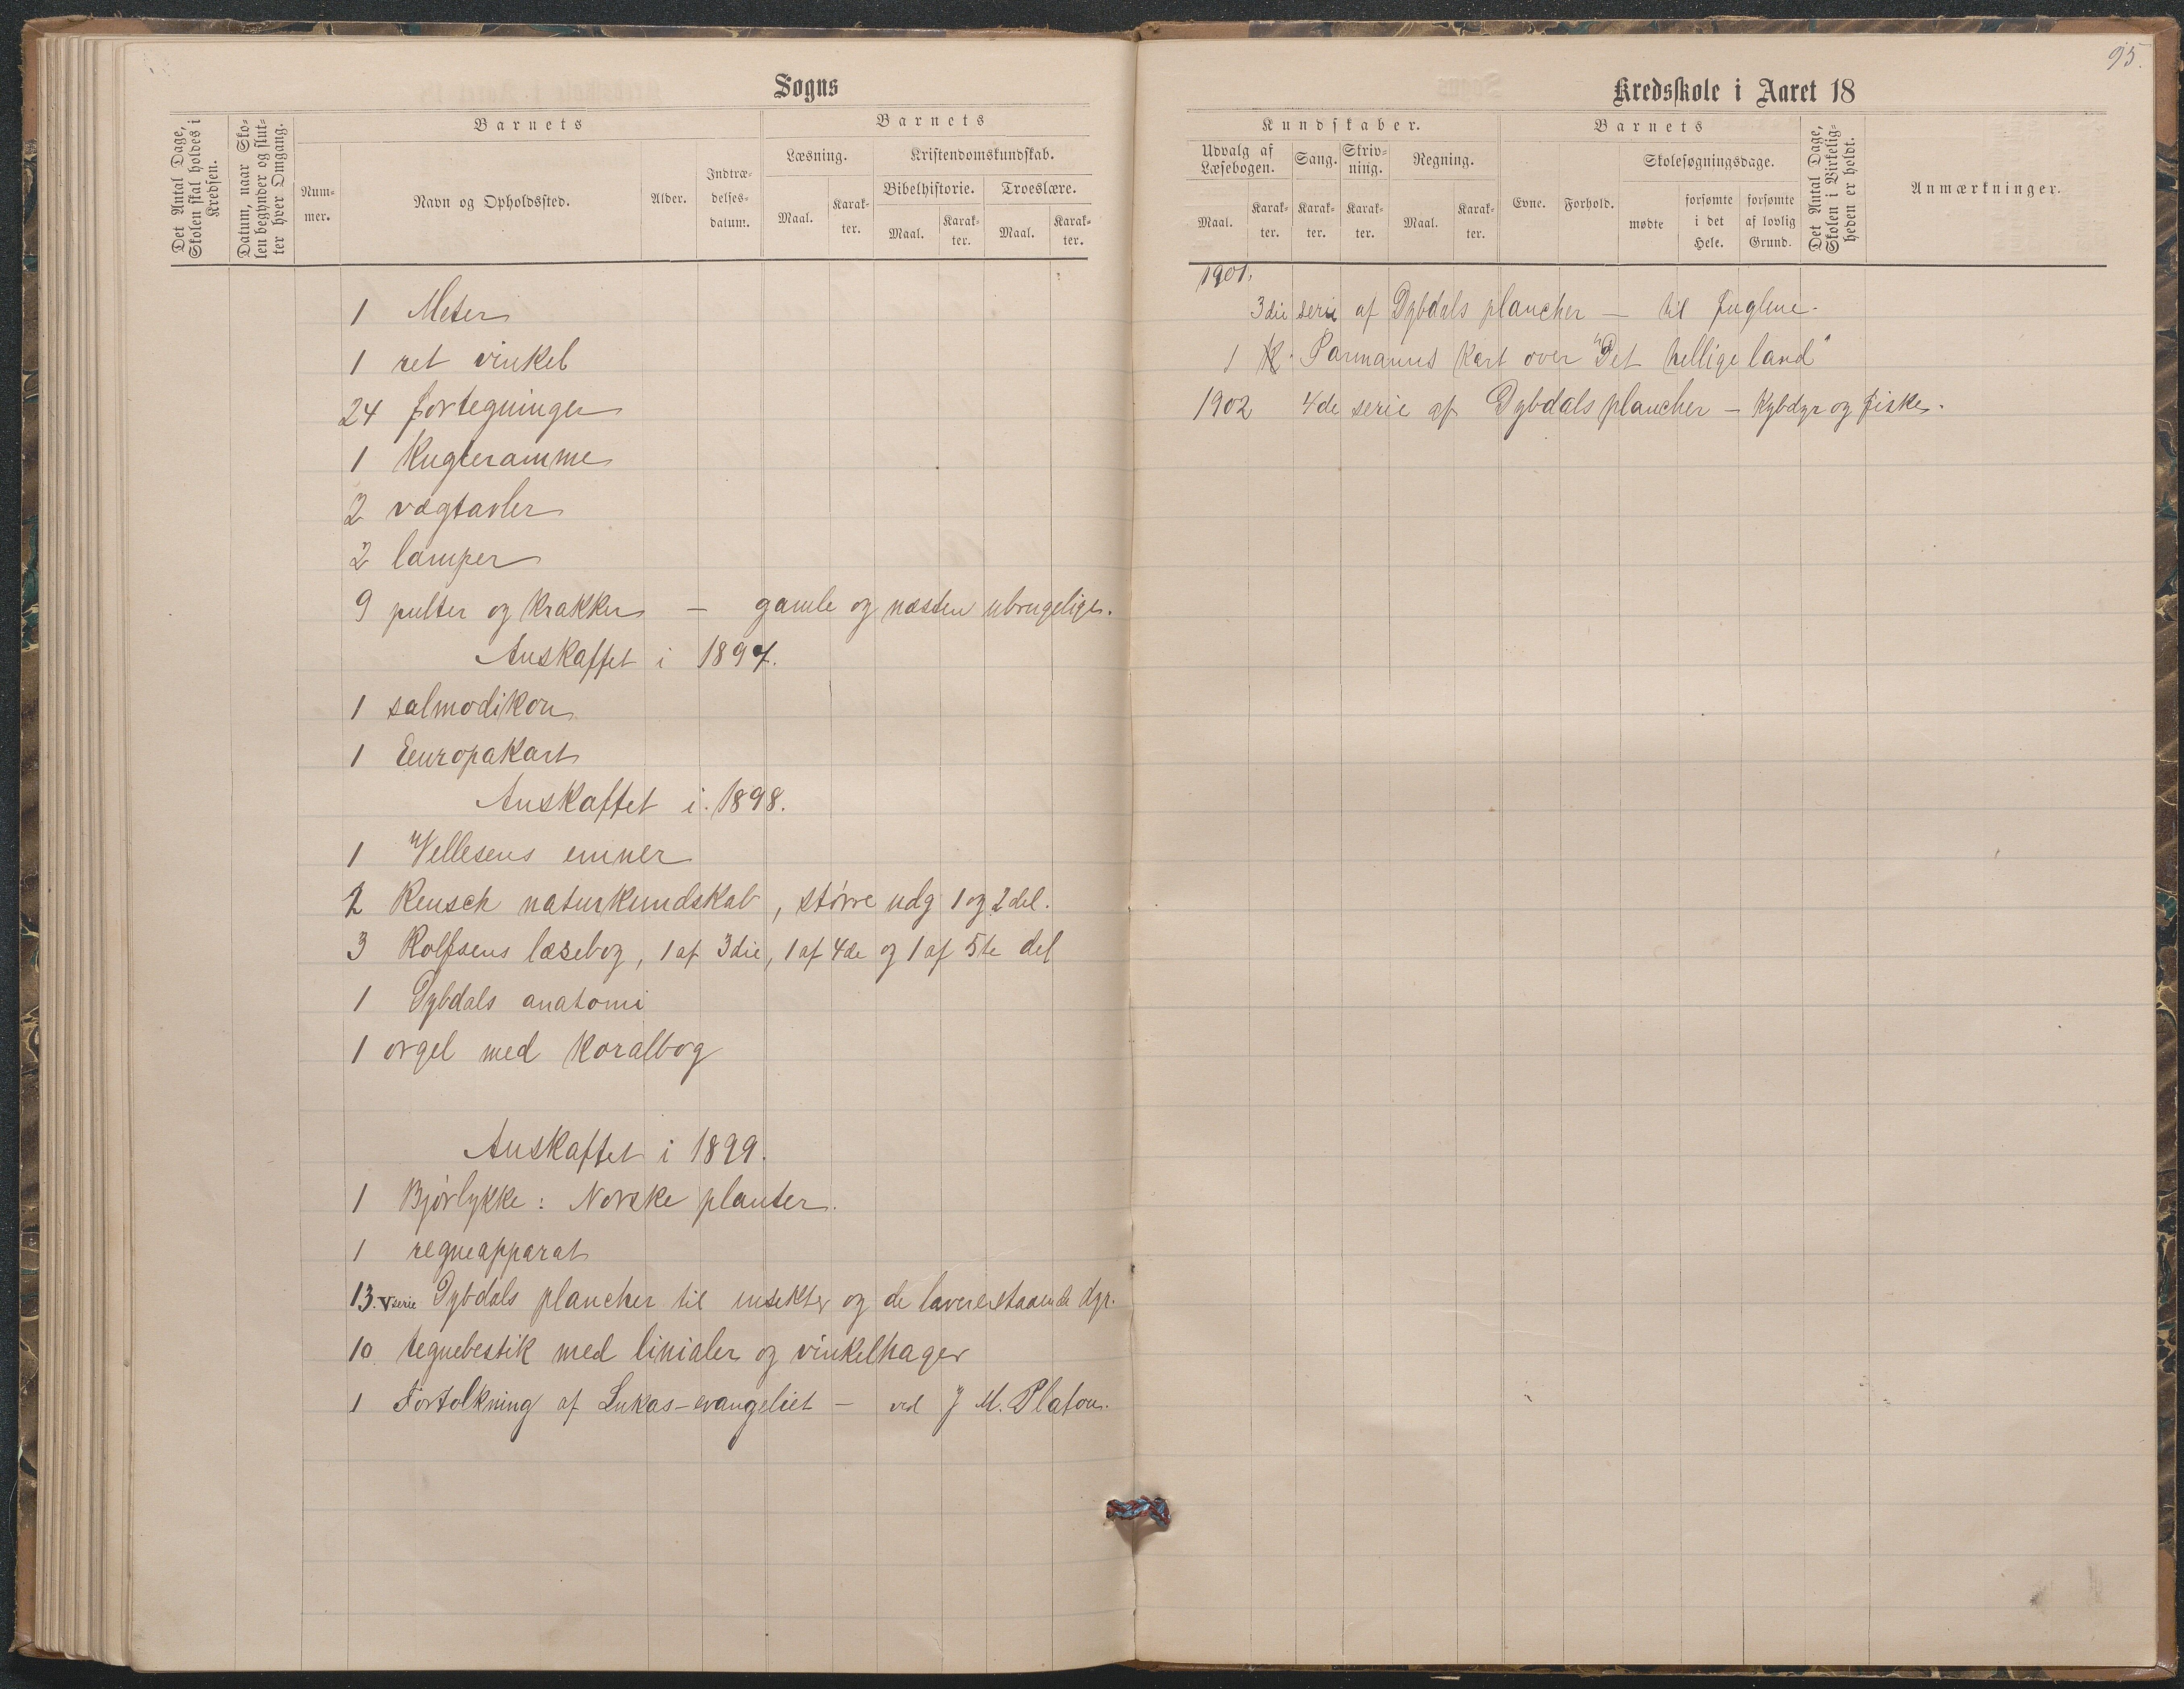 Sogns
Det Antal Dage, Skolen skal holdes i Kredsen.
Datum, naar Skolen begynder og slutter hver Omgang.
Barnets
Nummer.
Navn og Opholdssted.
Alder.
Indtrædelsesdatum.
Barnets
Læsning.
Kristendomskundskab.
Maal.
Karakter.
Bibelhistorie.
Troeslære.
Maal.
Karakter.
Maal.
Karakter.
1 Meter
1 ret vinkel
24 fortegninger
1 Kugleramme
2 vægtavler
2 lamper
9 pulter og krakker – gamle og næsten ubrugelige.
Anskaffet i 1897.
1 salmodikon
1 Eeuropakart
Anskaffet i 1898.
1 Vellesens emner
2 Reusch naturkundskab, større udg 1 og 2 del.
3 Rolfsens læsebog, 1 af 3die, 1 af 4de og 1 af 5te del
1 Dybdals anatomi
1 orgel med Koralbog
Anskaffet i 1899.
1 Bjørlykke: Norske planter.
1 regneapparat
13. V serie Dybdals plancher til insekter og de laverestaaende dyr.
10 tegnebestik med linialer og vinkelhager
1 Fortolkning af Lukas-evangeliet – ved J M. Platou.
95.
Kredsskole i Aaret 18
Kundskaber.
Udvalg af Læsebogen.
Sang.
Skrivning.
Regning.
Maal.
Karakter.
Karakter.
Karakter.
Maal.
Karakter.
Barnets
Evne.
Forhold.
Skolesøgningsdage.
mødte
forsømte i det Hele.
forsømte af lovlig Grund.
Det Antal Dage, Skolen i Virkeligheden er holdt.
Anmærkninger.
1901.
3die serie af Dybdals plancher – til fuglene.
1 Parmanns Kart over "Det hellige land"
1902 4de serie af Dybdals plancher – Kybdyr og fiske.